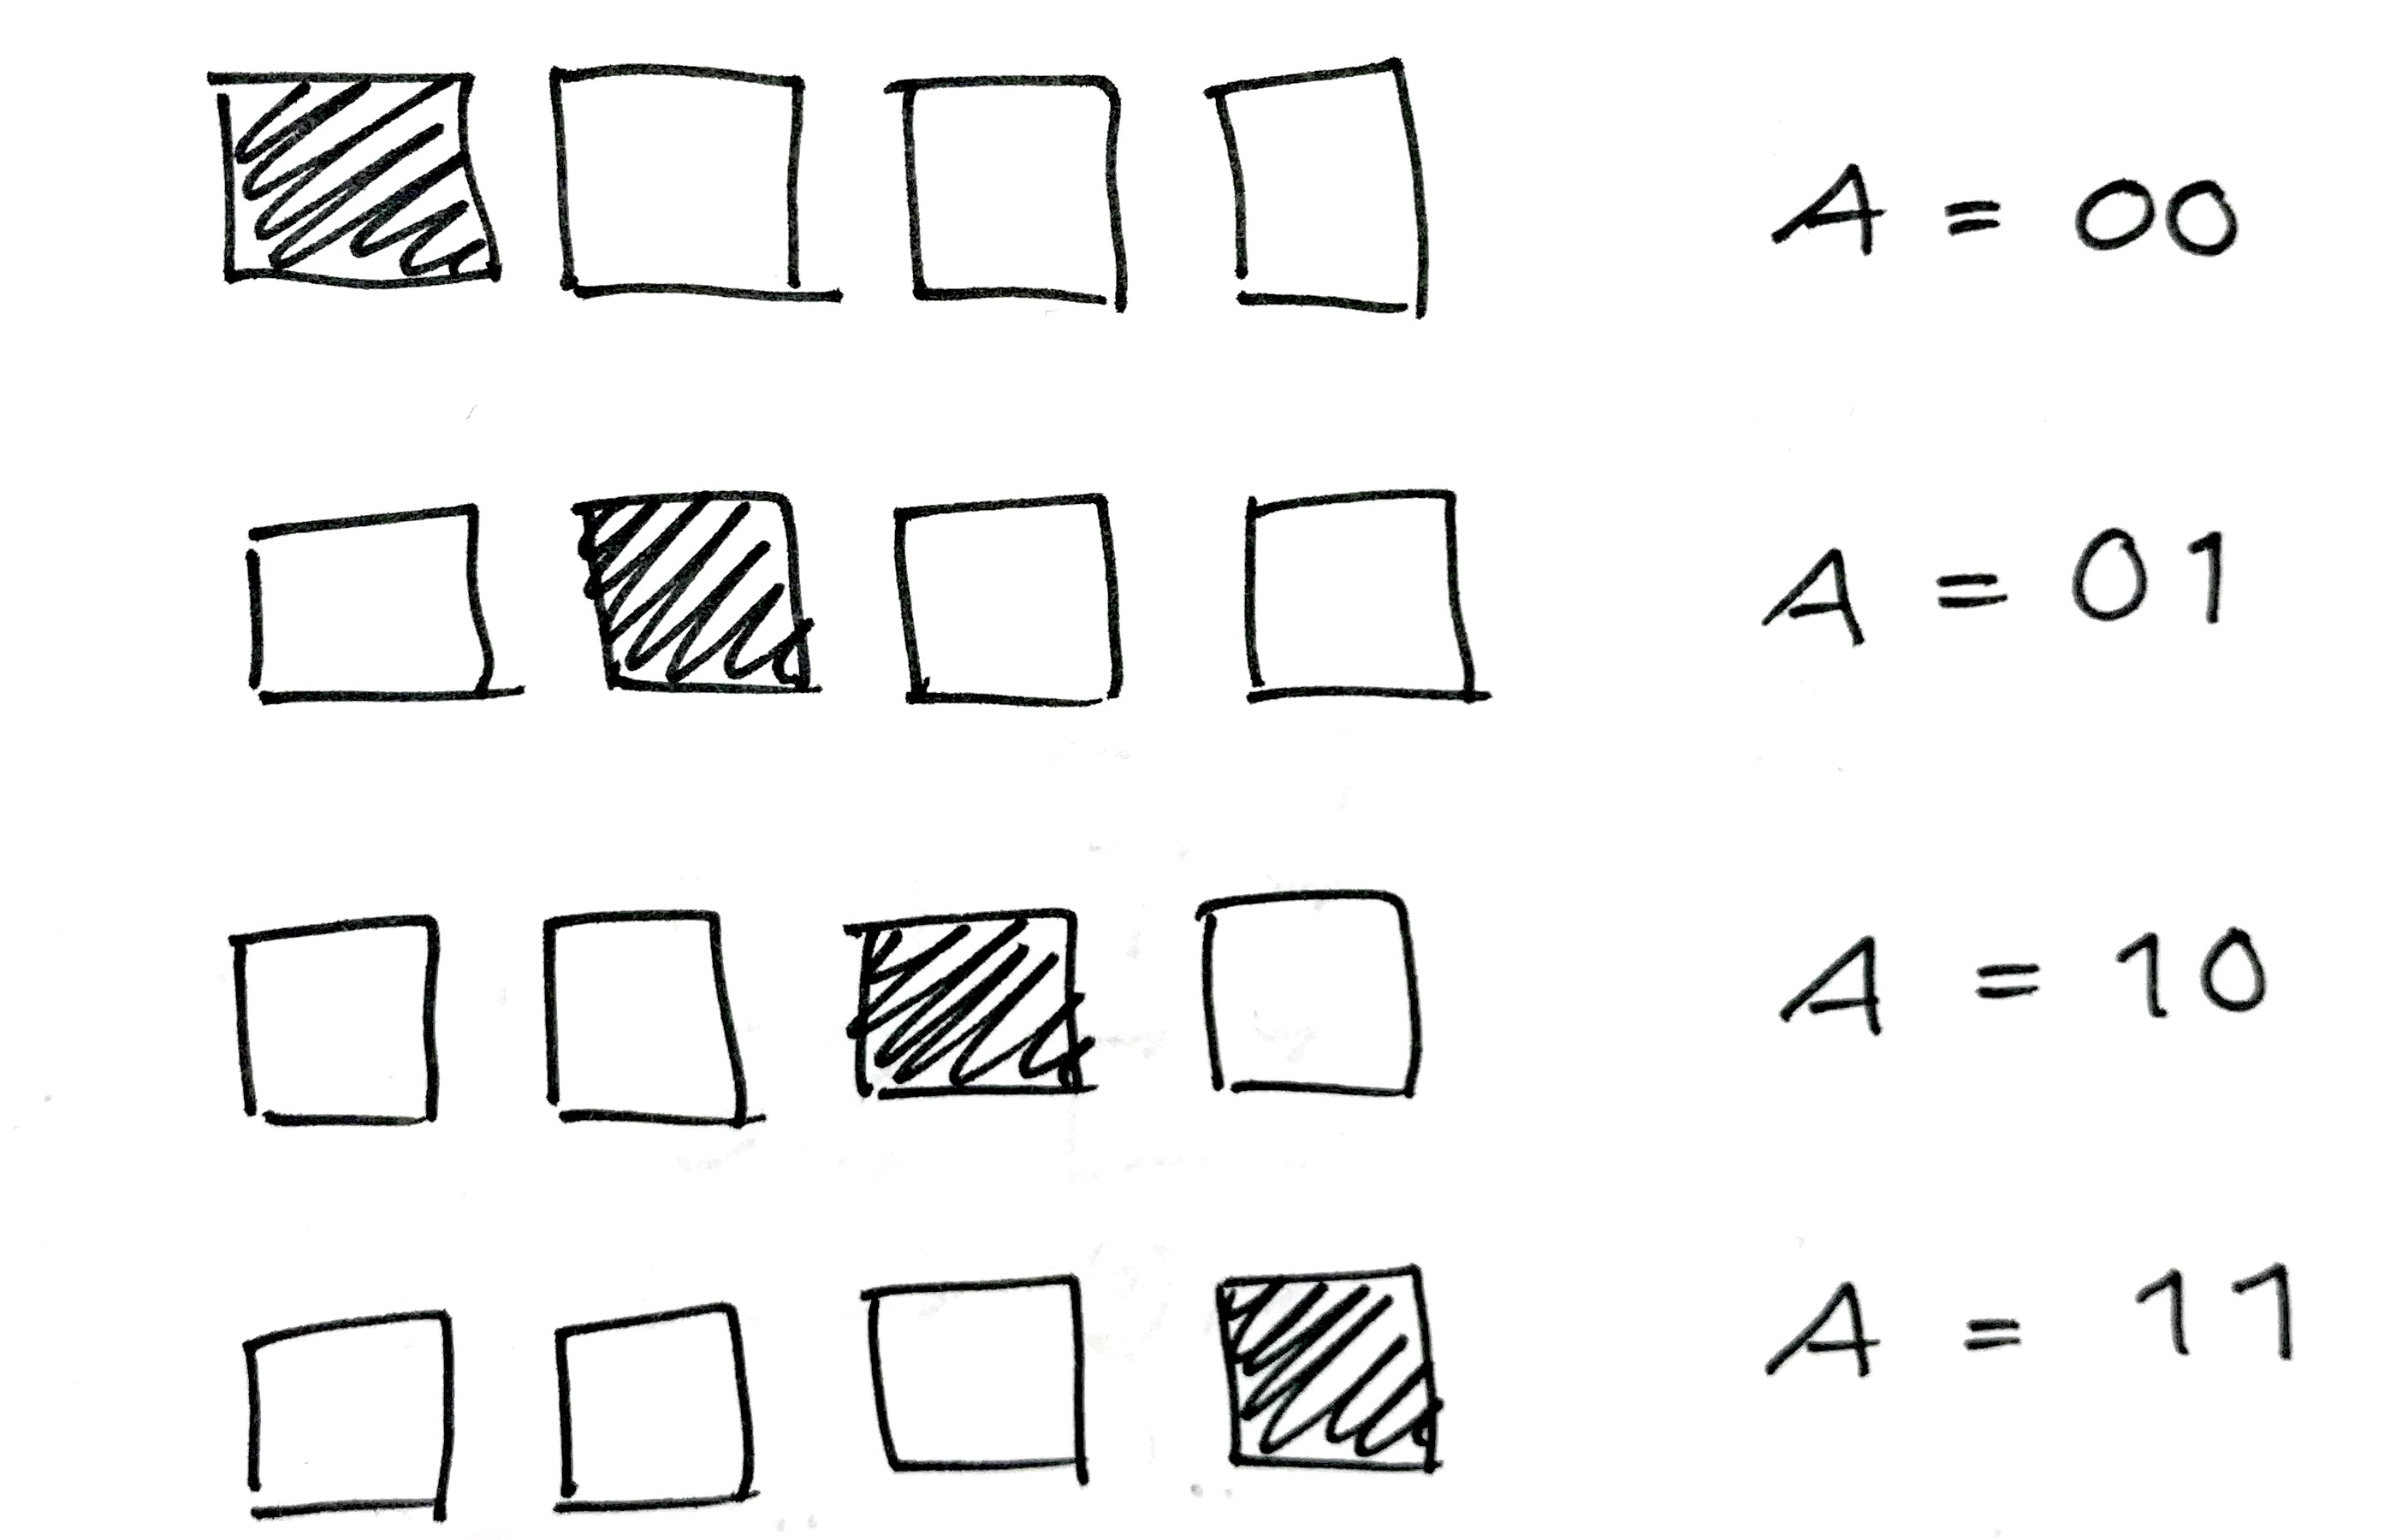 A = 00
A = 01
A = 10
A = 11